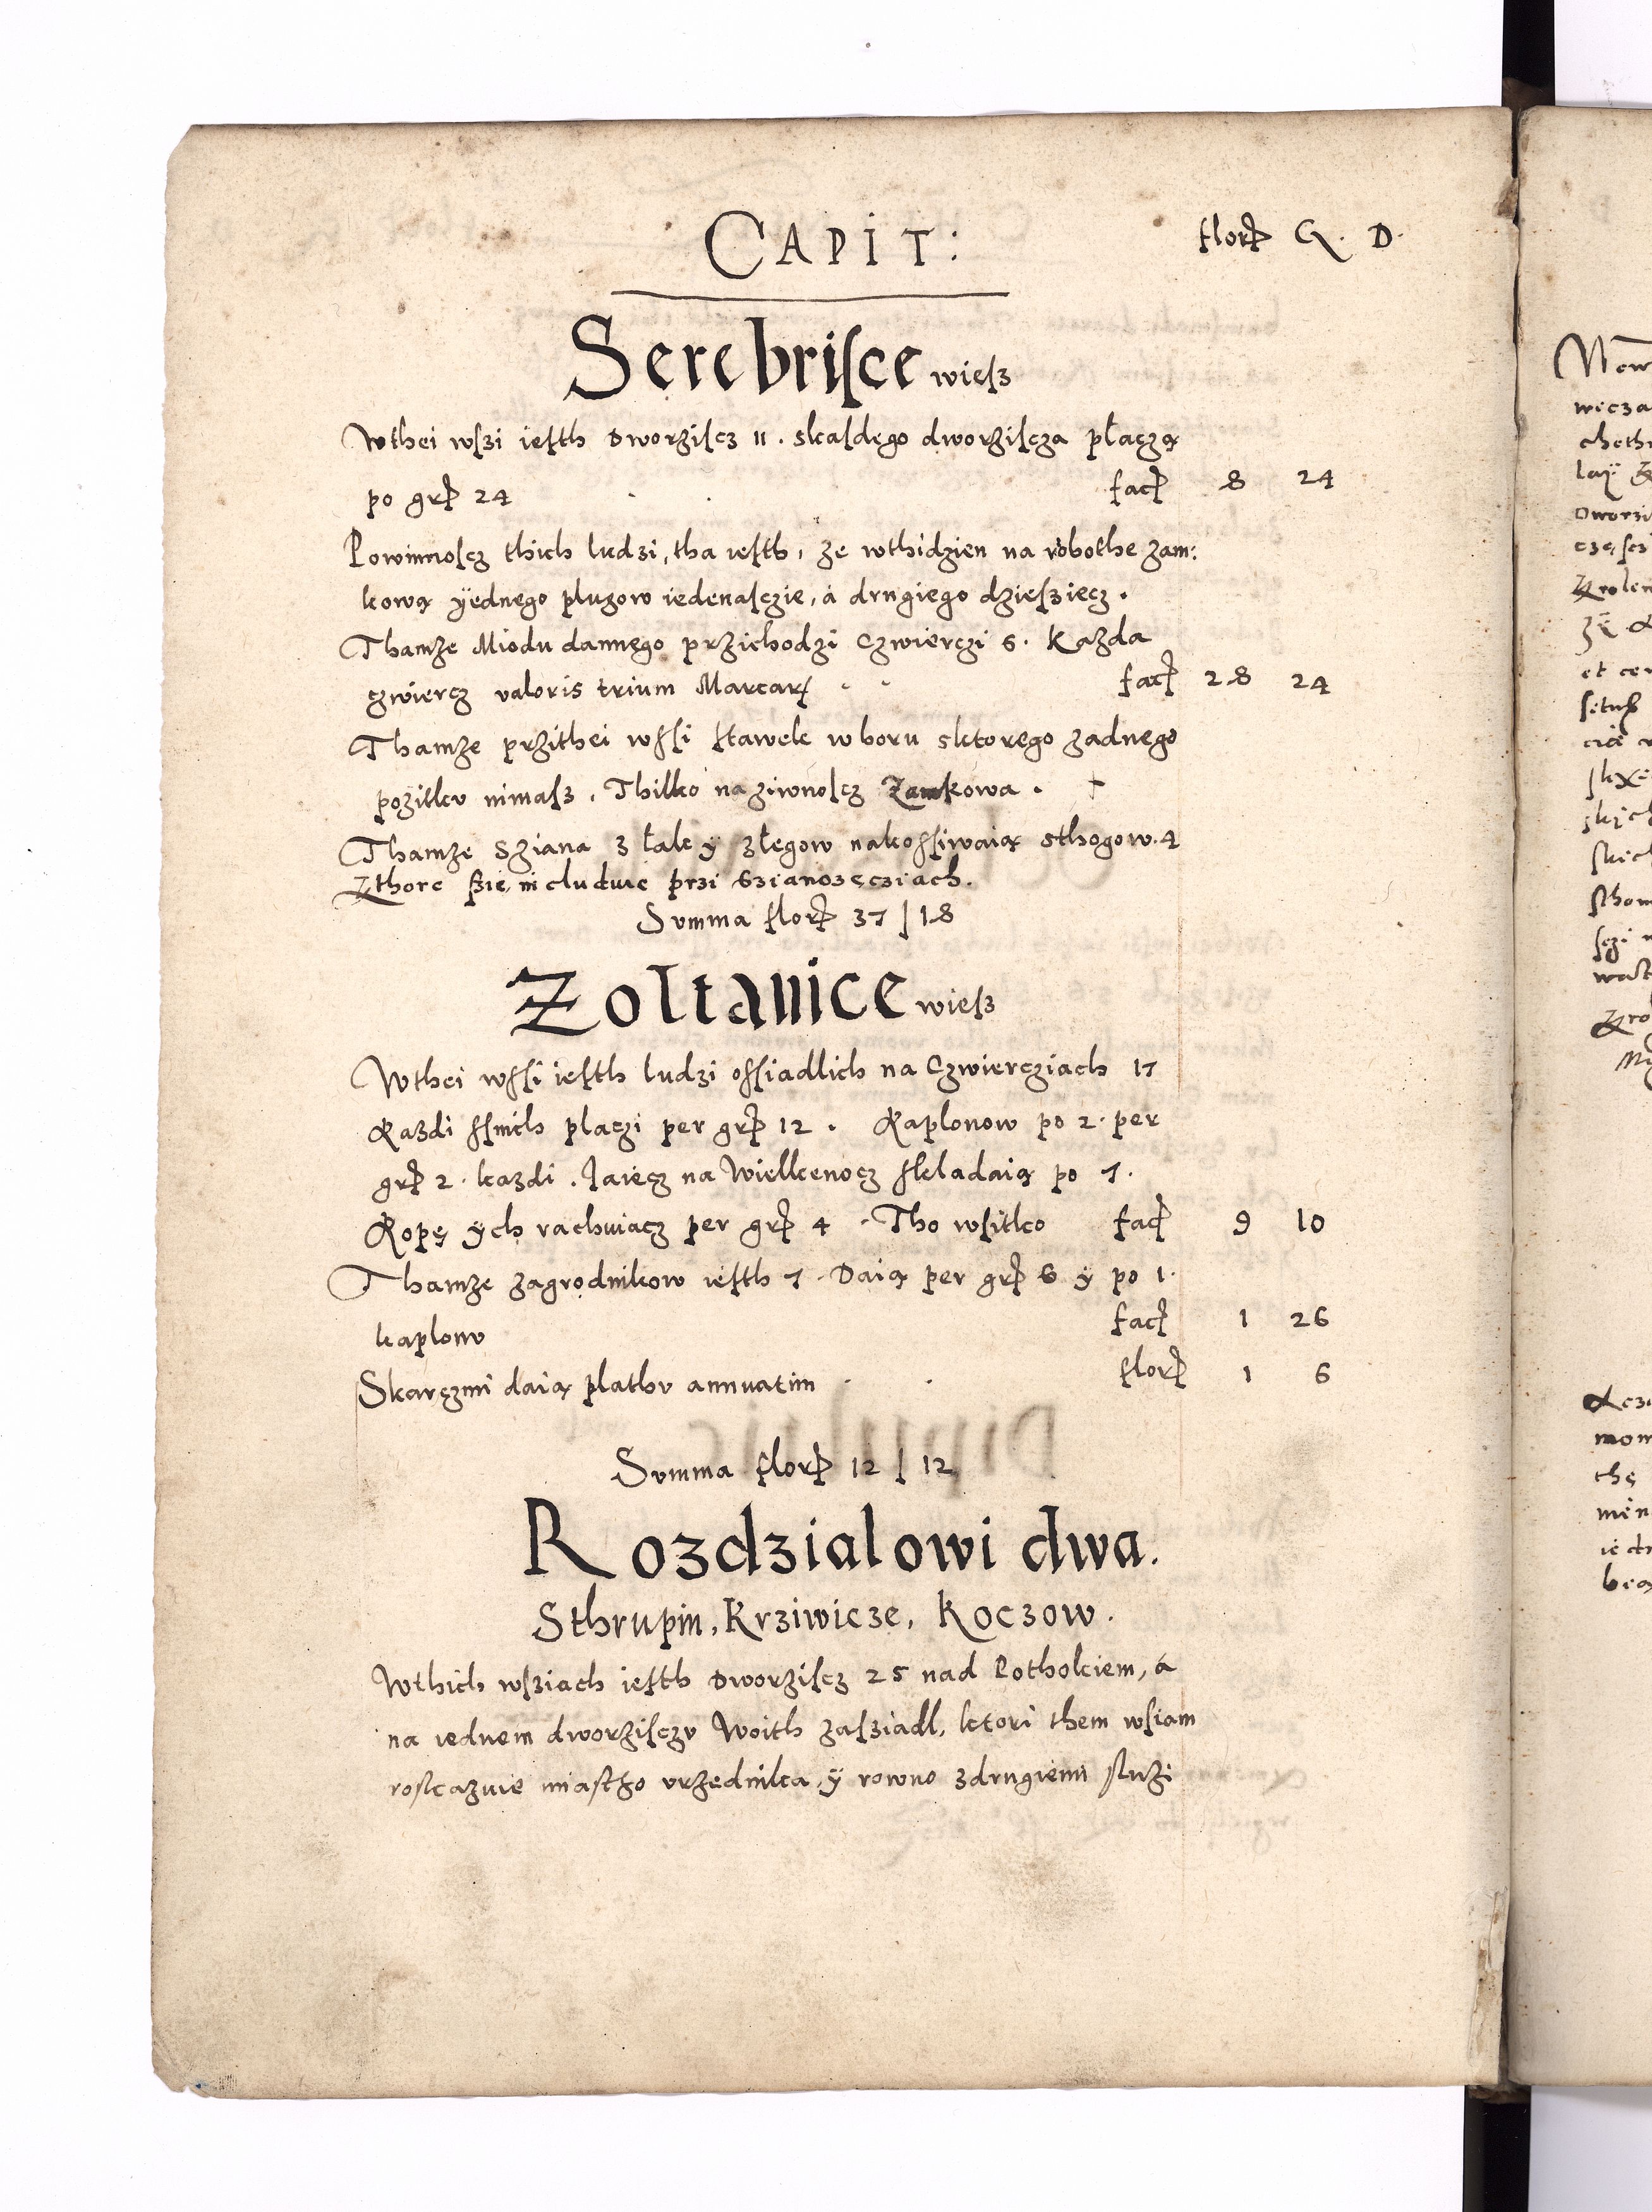 CAPIT:
flor G. D.
Serebrisce wiesz
Wthei wszi iesth dworziscz 11. skasdego dworziscza płaczą
po gr 24 fac 8 24
Powinnoscz thich ludzi, tha iesth, ze wthidzien na robothe zam:
kową ÿednego plugow iedenasczie, á drugiego dzieszięcz.
Thamze Miodu dannego przichodzi Czwierczi 6. Kazda
czwiercz valoris trium Marcar fac 28 24
Thamze przithei wssi stawek w boru sktorego zadnego
pozitku nimasz. Thilko na ziwnoscz Zamkowa. +
Thamze Sziana z łak y złegow nakossiwaią sthogow. 4
Kthore szię includuie przi Szianozęcziach.
Summa flor 37 | 18
Zoltanice wiesz
Wthei wssi iesth ludzi ossiadlich na Czwiercziach 17
Kazdi ssnich placzi per gr 12. Kaplonow po 2. per
gr 2. kazdi. Jaiecz na Wielkenocz skladaią po 7.
Kopę ÿch rachuiacz per gr 4. Tho wsitko fac 9 10
Thamze zagrodnikow iesth 7. Daią per gr 6 ÿ po 1.
kaplonu fac 1 26
Skarczmi daią plathu annuatim flor 1 6
Summa flor 12 | 12
Rozdzialowi dwa.
Sthrupin, Krziwicze, Koczow.
Wthich wsziach iesth dworziscz 25 nad Potholciem, á
na iednem dworzisczu Woith zasziadl, ktori them wsiam
roskazuie miastho urzednika, ÿ rowno zdrugiemi sluzi